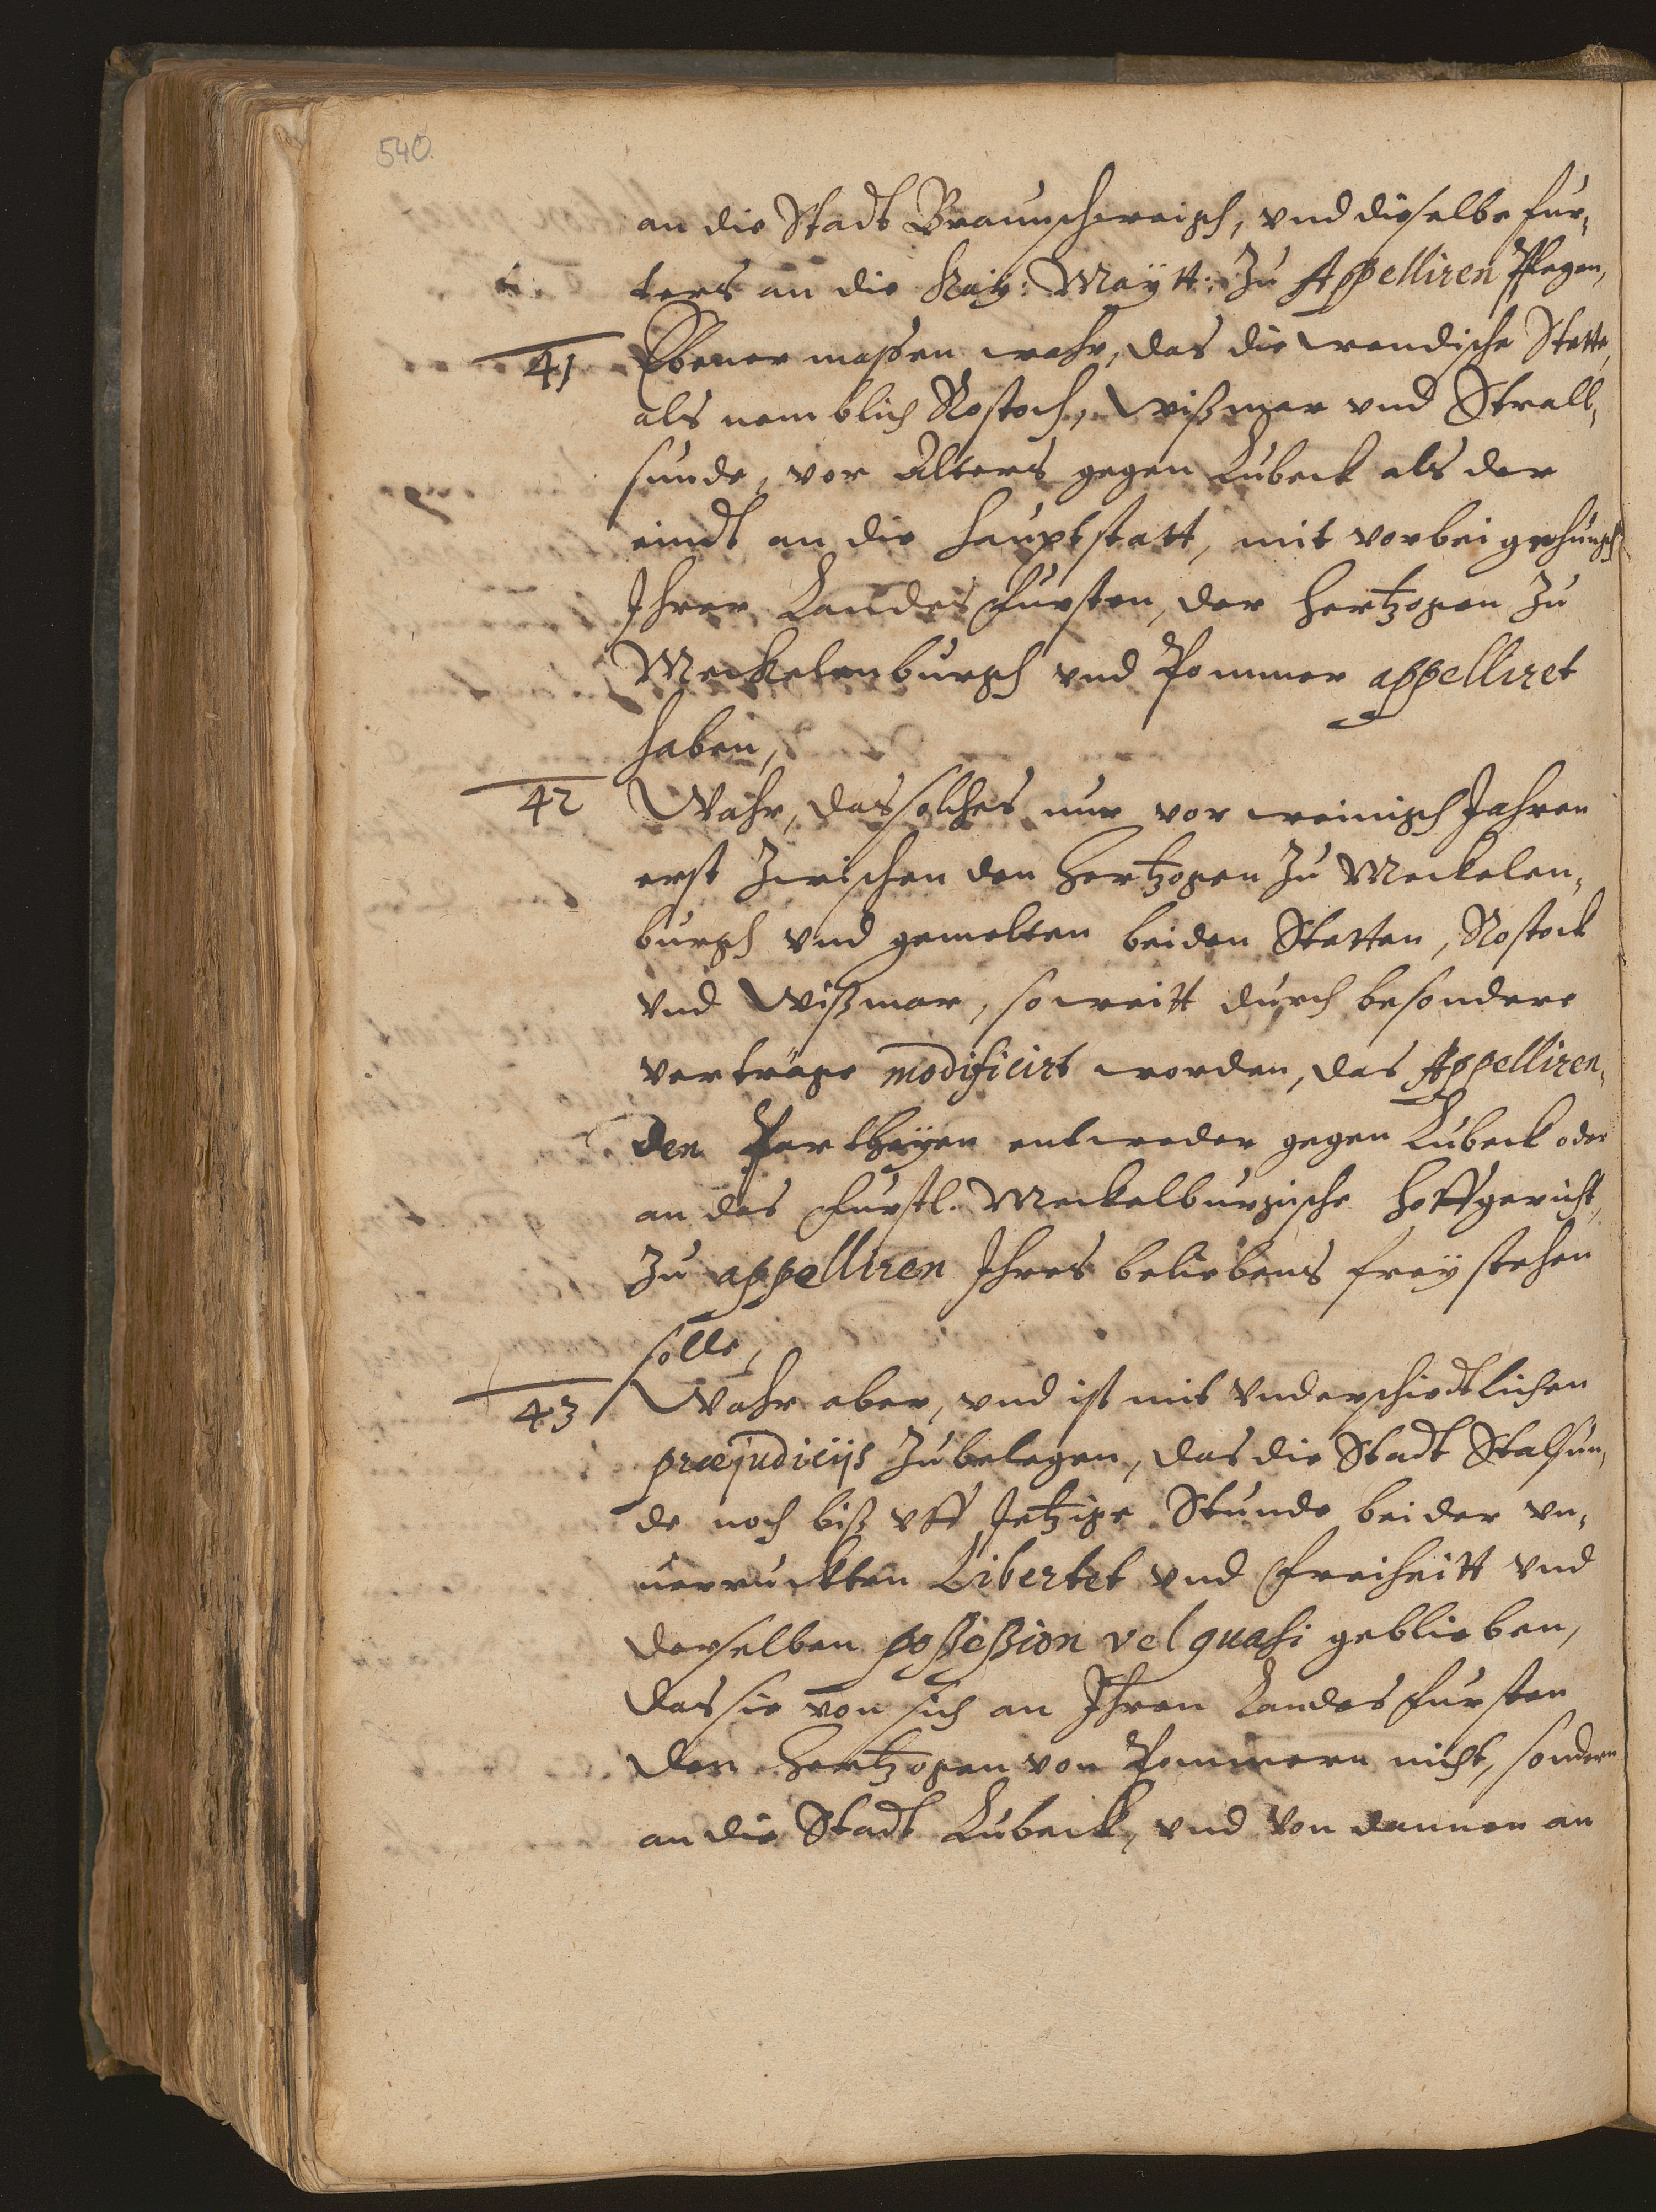 540.
an die Stadt Braunschweigh, vnd dieselbe fur,
ters an die Kaÿ: Maÿtt: Zu Appelliren Pflegen,
41 Ebener massen wahr, das die wendische Stette,
als nemblich Rostoch, Wißmar vnd Strall,
sunde, vor Alters gegen Lubeck als der
eindt an die Hauptstatt, mit vorbeigehungh
Ihrer Landes Fursten, der Hertzogen Zu
Meckelenburgh vnd Pommer appelliret
haben,
42 Wahr, das solches nur vor weinigh Jahren
erst Zwischen den Hertzogen Zu Meckelen,
burgh vnd gemelten beiden Stetten, Rostock
vnd Wißmar, so weitt durch besondere
verträge modificirt worden, das Appelliren,
den Partheÿen entweder gegen Lubeck oder
an das Furstl. Meckelburgische Hoffgericht,
Zu appelliren Ihres beliebens freÿ stehen
solle,
43 Wahr aber, vnd ist mit Vnderschiedtlichen
præjudicijs Zubelegen, das die Stadt Stalsun,
de noch biß vff Jetzige Stunde bei der vn,
uerruckten Libertet vnd Freiheitt vnd
derselben possession vel quasi geblieben,
das sie von sich an Ihren Landes Fursten
den Hertzogen von Pommern nicht, sondern
an die Stadt Lubeck, vnd von dannen an